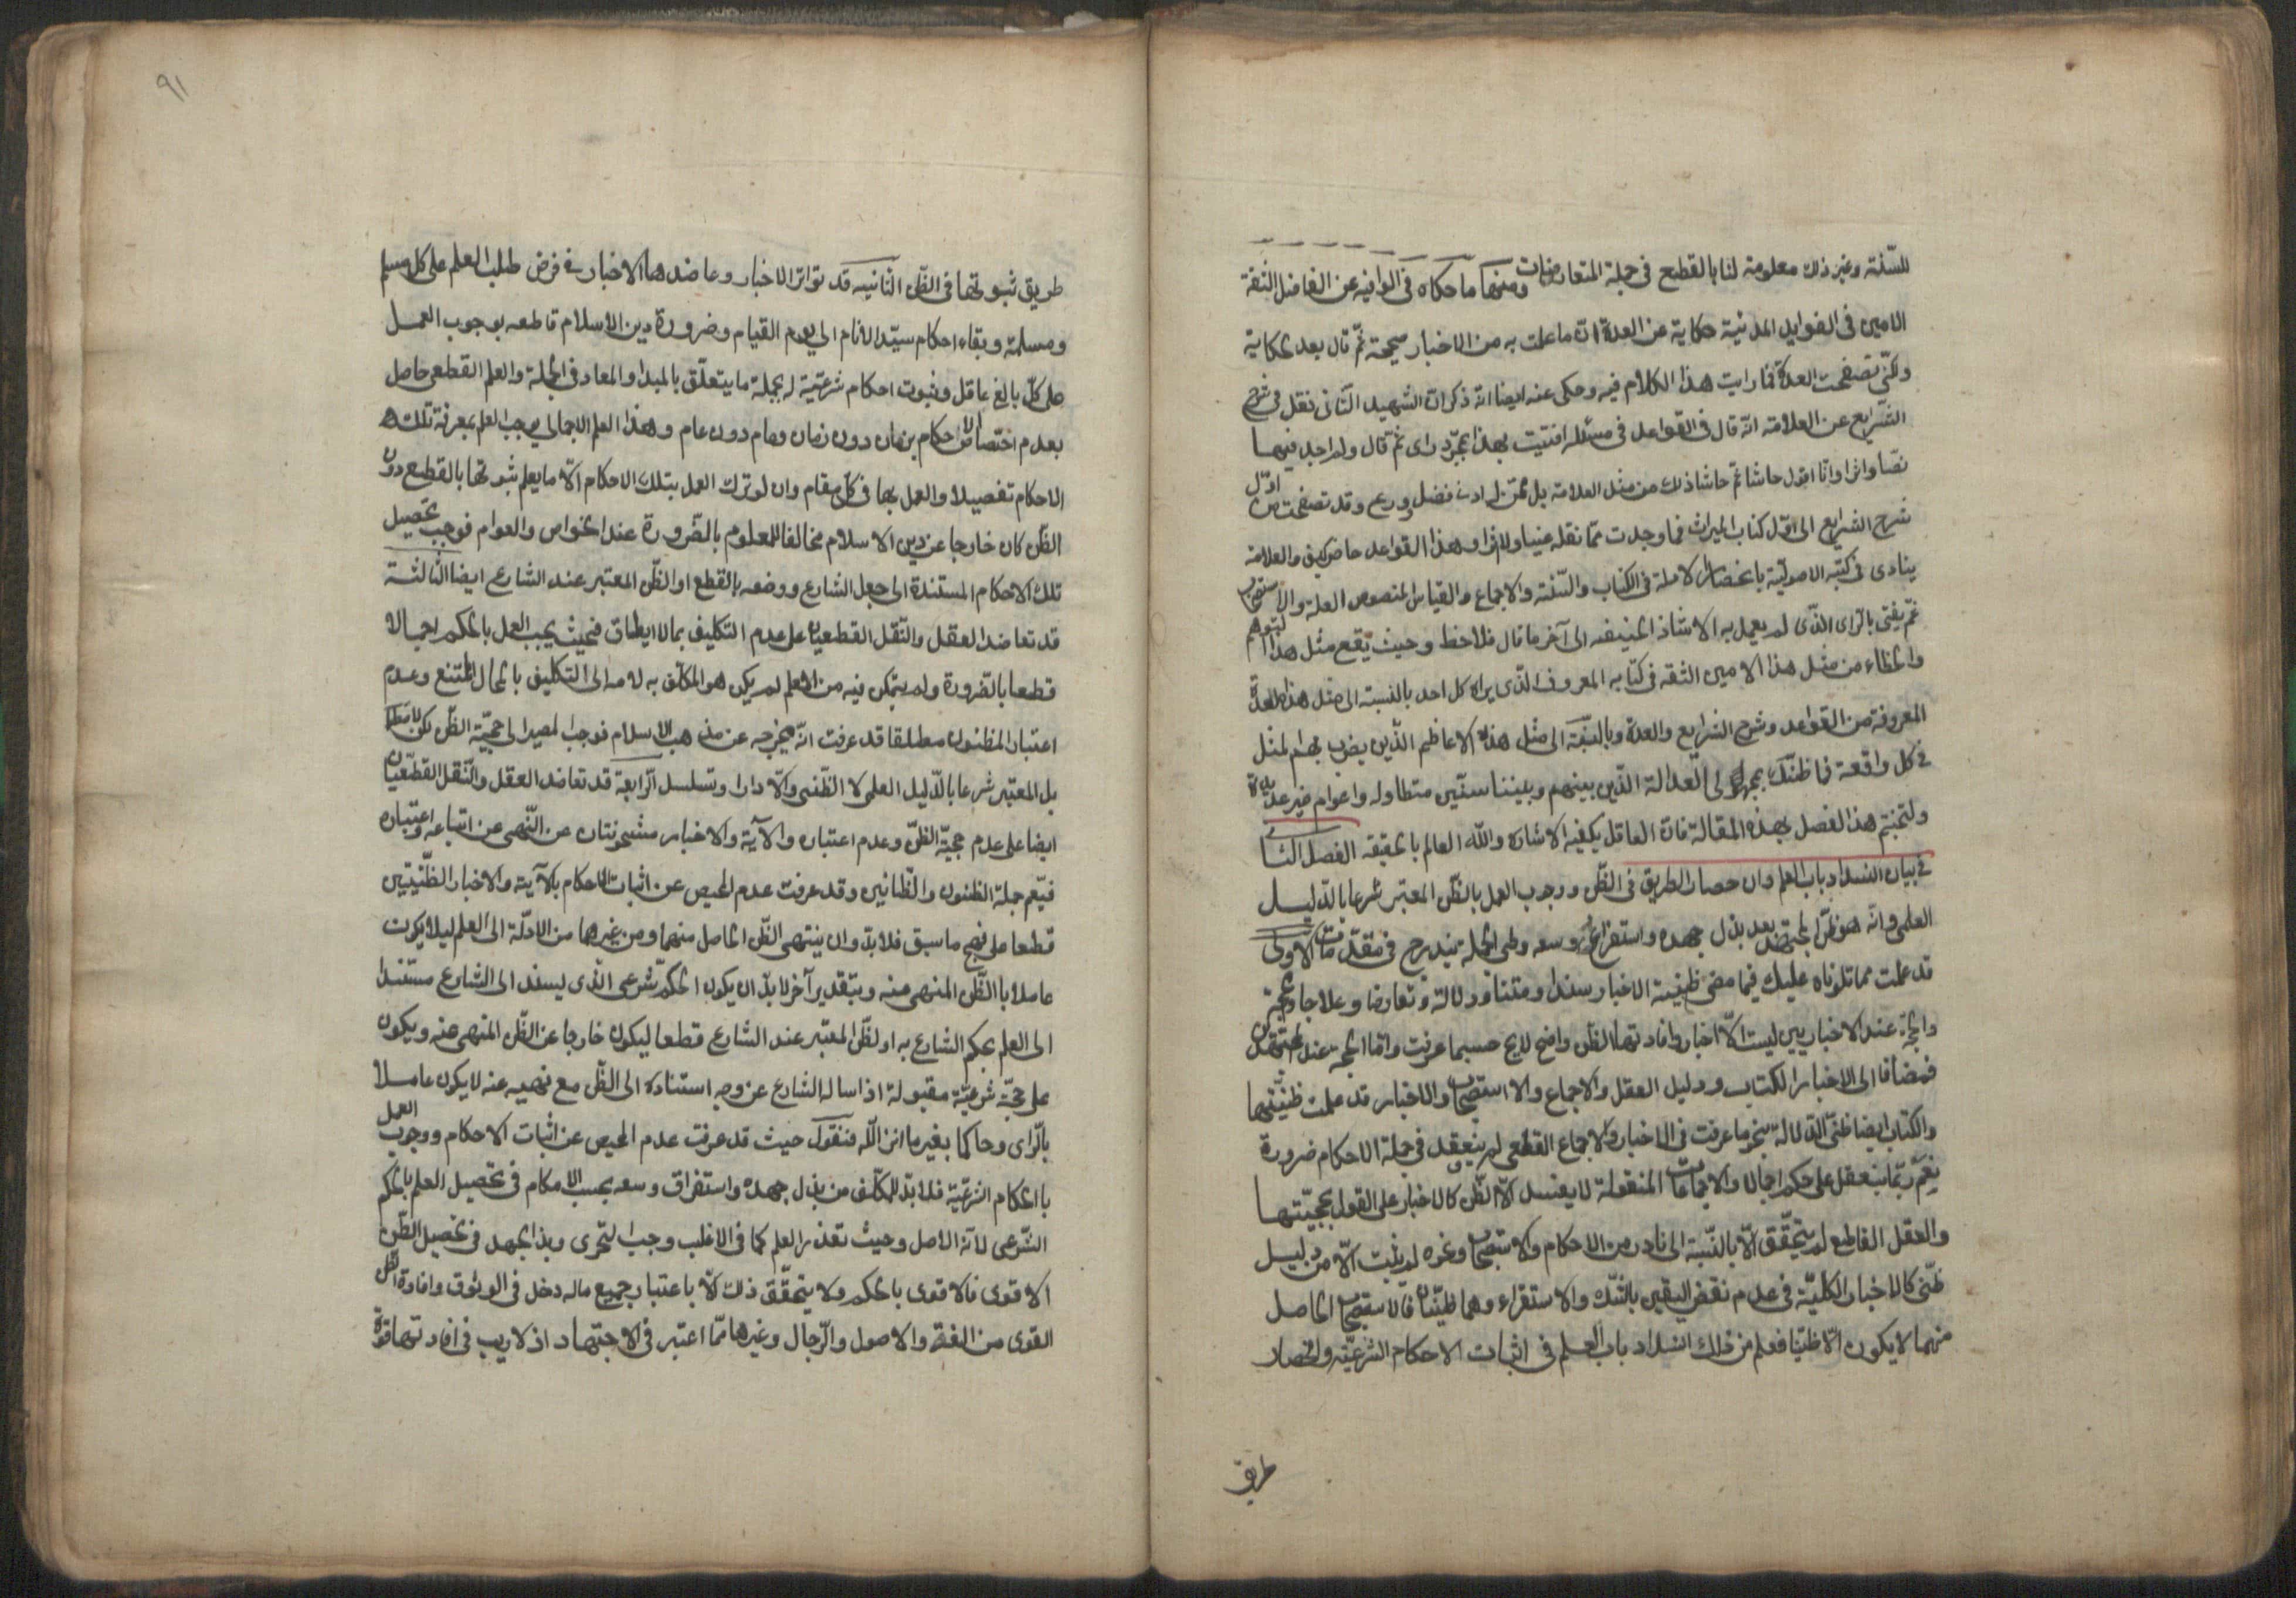 للسّنة وغير ذلك معلومة لنا بالقطع فى جملة المتعارضات ومنها ما حكاه فى الوافيه عن الفاضل الثقة
الامين فى الفوايد المدنية حكاية عن العدة انّ ما عملت به من الاخبار صحيحة ثمّ قال بعد الحكاية
ولكنّى تصفحت العدة فما رايت هذا الكلام فيه وحكى عنه ايضا انّه ذكر ان الشهيد الثانى نقل فى شرح
الشّرايع عن العلامة انّه قال فى القواعد فى مسئله افتيت بهذا بمجرّد راى ثم قال ولم اجد فيها
نصّا ولا اثرا وانا اقول حاشا ثم حاشا ذلك من مثل العلامة بل ممّن له ادنى فضل وورع وقد تصفحت من اوّل
شرح الشرايع الى اوّل كتاب الميراث فما وجدت ممّا نقله عينا ولا اثرا وهذا القواعد حاضر كيف والعلامة
ينادى فى كتبه الاصوليّة بانحصار الادلة فى الكتاب والسّنة والاجماع والقياس المنصوص العلة والاستصحاب
ثمّ يفتى بالراى الذى لم يعمل به الا شاذ الحنيفه الى آخر ما قال فلاحظ وحيث يقع مثل هذا التوهم
والخطاء من مثل هذا الامين الثقه فى كتابه المعروف الذى يراه كل احد بالنسبة الى مثل هذه العدة
المعروفة من القواعد وشرح الشرايع والعدة وبالنسبة الى مثل هذه الاعاظم الذين يضرب بهم المثل
فى كل واقعة فما ظنّك بمجهولى العدالة الذين بينهم وبيننا سنين متطاوله واعوام غير عديدة
ولنختم هذا الفصل بهذه المقالة فانّ العاقل يكفيه الاشارة والله العالم بالحقيقه الفصل الثانى
فى بيان انسداد باب العلم وانحصار الطريق فى الظّن ووجوب العمل بالظّن المعتبر شرعا بالدّليل
العلمى وانّه هو ظنّ المجتهد بعد بذل جهده واستفراغ وسعه وطى الجملة يندرج فى مقدّمات الاولى
قد علمت مما تلوناه عليك فيما مضى ظنّية الاخبار سندا ومتنا ودلالة وتعارضا وعلاجا وحجية
والحجة عند الاخباريين ليست الّا اخبار وافادتها الظّن واضح لايح حسبما عرفت وامّا الحجة عند المجتهدين
فمضافا الى الاخبار الكتاب ودليل العقل والاجماع والاستصحاب والاخبار قد علمت ظنيّتها
والكتاب ايضا ظنّى الدّلالة بنحو ما عرفت فى الاخبار والاجماع القطعى لم ينعقد فى جملة الاحكام ضرورة
نعم ربّما ينعقد على حكم اجمالا والاجماعات المنقولة لا يفيد الّا الظّن كالاخبار على القول بحجيّتها
والعقل القاطع لم يتحقّق الّا بالنّسبة الى نادر من الاحكام والاستصحاب وغيره لم يثبت الّا من دليل
ظّنى كالاخبار الكليّة فى عدم نقض اليقين بالشّك والاستقراء وهما ظنّيّان فالاستصحاب الحاصل
منهما لا يكون الّا ظنّيا فعلم من ذلك انسداد باب العلم فى اثبات الاحكام الشرعيّة وانحصار
طريق
٩١
طريق ثبوتها فى الظّن الثانيه قد تواتر الاخبار وعاضدها الاخبار فى فرض طلب العلم على كل مسلم
ومسلمة وبقاء احكام سيّد الانام الى يوم القيام وضرورة دين الاسلام قاطعه بوجوب العمل
على كلّ بالغ عاقل وثبوت احكام شرعيّة له بجملة ما يتعلّق بالمبدا والمعاد فى الجملة والعلم القطعى حاصل
بعدم اختصاص الاحكام بزمان دون زمان وعام دون عام وهذا العلم الاجمالى يوجب العلم بمعرفة تلك
الاحكام تفصيلا والعمل بها فى كلّ مقام وان لو ترك العمل بتلك الاحكام الّا ما يعلم ثبوتها بالقطع دون
الظّن كان خارجا عن دين الاسلام مخالفا للمعلوم بالضّرورة عند الخواص والعوام فوجب تحصيل
تلك الاحكام المستندة الى جعل الشارع ووضعه بالقطع او الظّن المعتبر عند الشارع ايضا الثالثة
قد تعاضد العقل والنّقل القطعيان على عدم التكليف بما لا يطاق فحيث يجب العمل بالحكم اجمالا
قطعا بالضرورة ولم يتمكن فيه من العلم لم يكن هو المكلّف به لادّاه الى التكليف بالمحال الممتنع وعدم
اعتبار المظنون مطلقا قد عرفت انّه يخرجه عن مذهب الاسلام فوجب المصير الى حجيّة الظّن لكن لا مطلقا
بل المعتبر شرعا بالدّليل العلمى لا الظّنى والّا دار او تسلسل الرّابعة قد تعاضد العقل والنّقل القطعيّان
ايضا على عدم حجيّة الظنّ وعدم اعتباره والآية والاخبار مشحونتان عن النّهى عن اتباعه واعتباره
فيعم جملة الظنون والظانين وقد عرفت عدم المحيص عن اثبات الاحكام بالآية والاخبار الظّنيتين
قطعا على نهج ما سبق فلا بدّ وان ينتهى الظّن الحاصل منهما ومن غيرهما من الادلّة الى العلم ليلا يكون
عاملا باالظّن المنهى عنه وبتقدير آخر لا بدّ ان يكون الحكم الشرعى الذى يسند الى الشارع مستندا
الى العلم بحكم الشارع به او لظّن المعتبر عند الشارع قطعا ليكون خارجا عن الظّن المنهى عنه ويكون
على حجّة شرعيّة مقبولة اذا سأله الشارع عن وجه استناده الى الظّن مع نهيه عنه لا يكون عاملا
بالراى وحاكما بغير ما انزل الله فنقول حيث قد عرفت عدم المحيص عن اثبات الاحكام ووجوب العمل
باالحكام الشرعيّة فلا بدّ للمكلّف من بذل جهده واستفراق وسعه بحسب الامكام فى تحصيل العلم بالحكم
الشّرعى لانّه الاصل وحيث تعذر العلم كما فى الاغلب وجب التحرى وبذا الجهد فى تحصيل الظّن
الاقوى فالاقوى بالحكم ولا يتحقّق ذلك الّا باعتبار جميع ماله دخل فى الوثوق وافادة الظن
القوى من الفقه والاصول والرّجال وغيرها ممّا اعتبر فى الاجتهاد اذ لا ريب فى افادتها قوّة